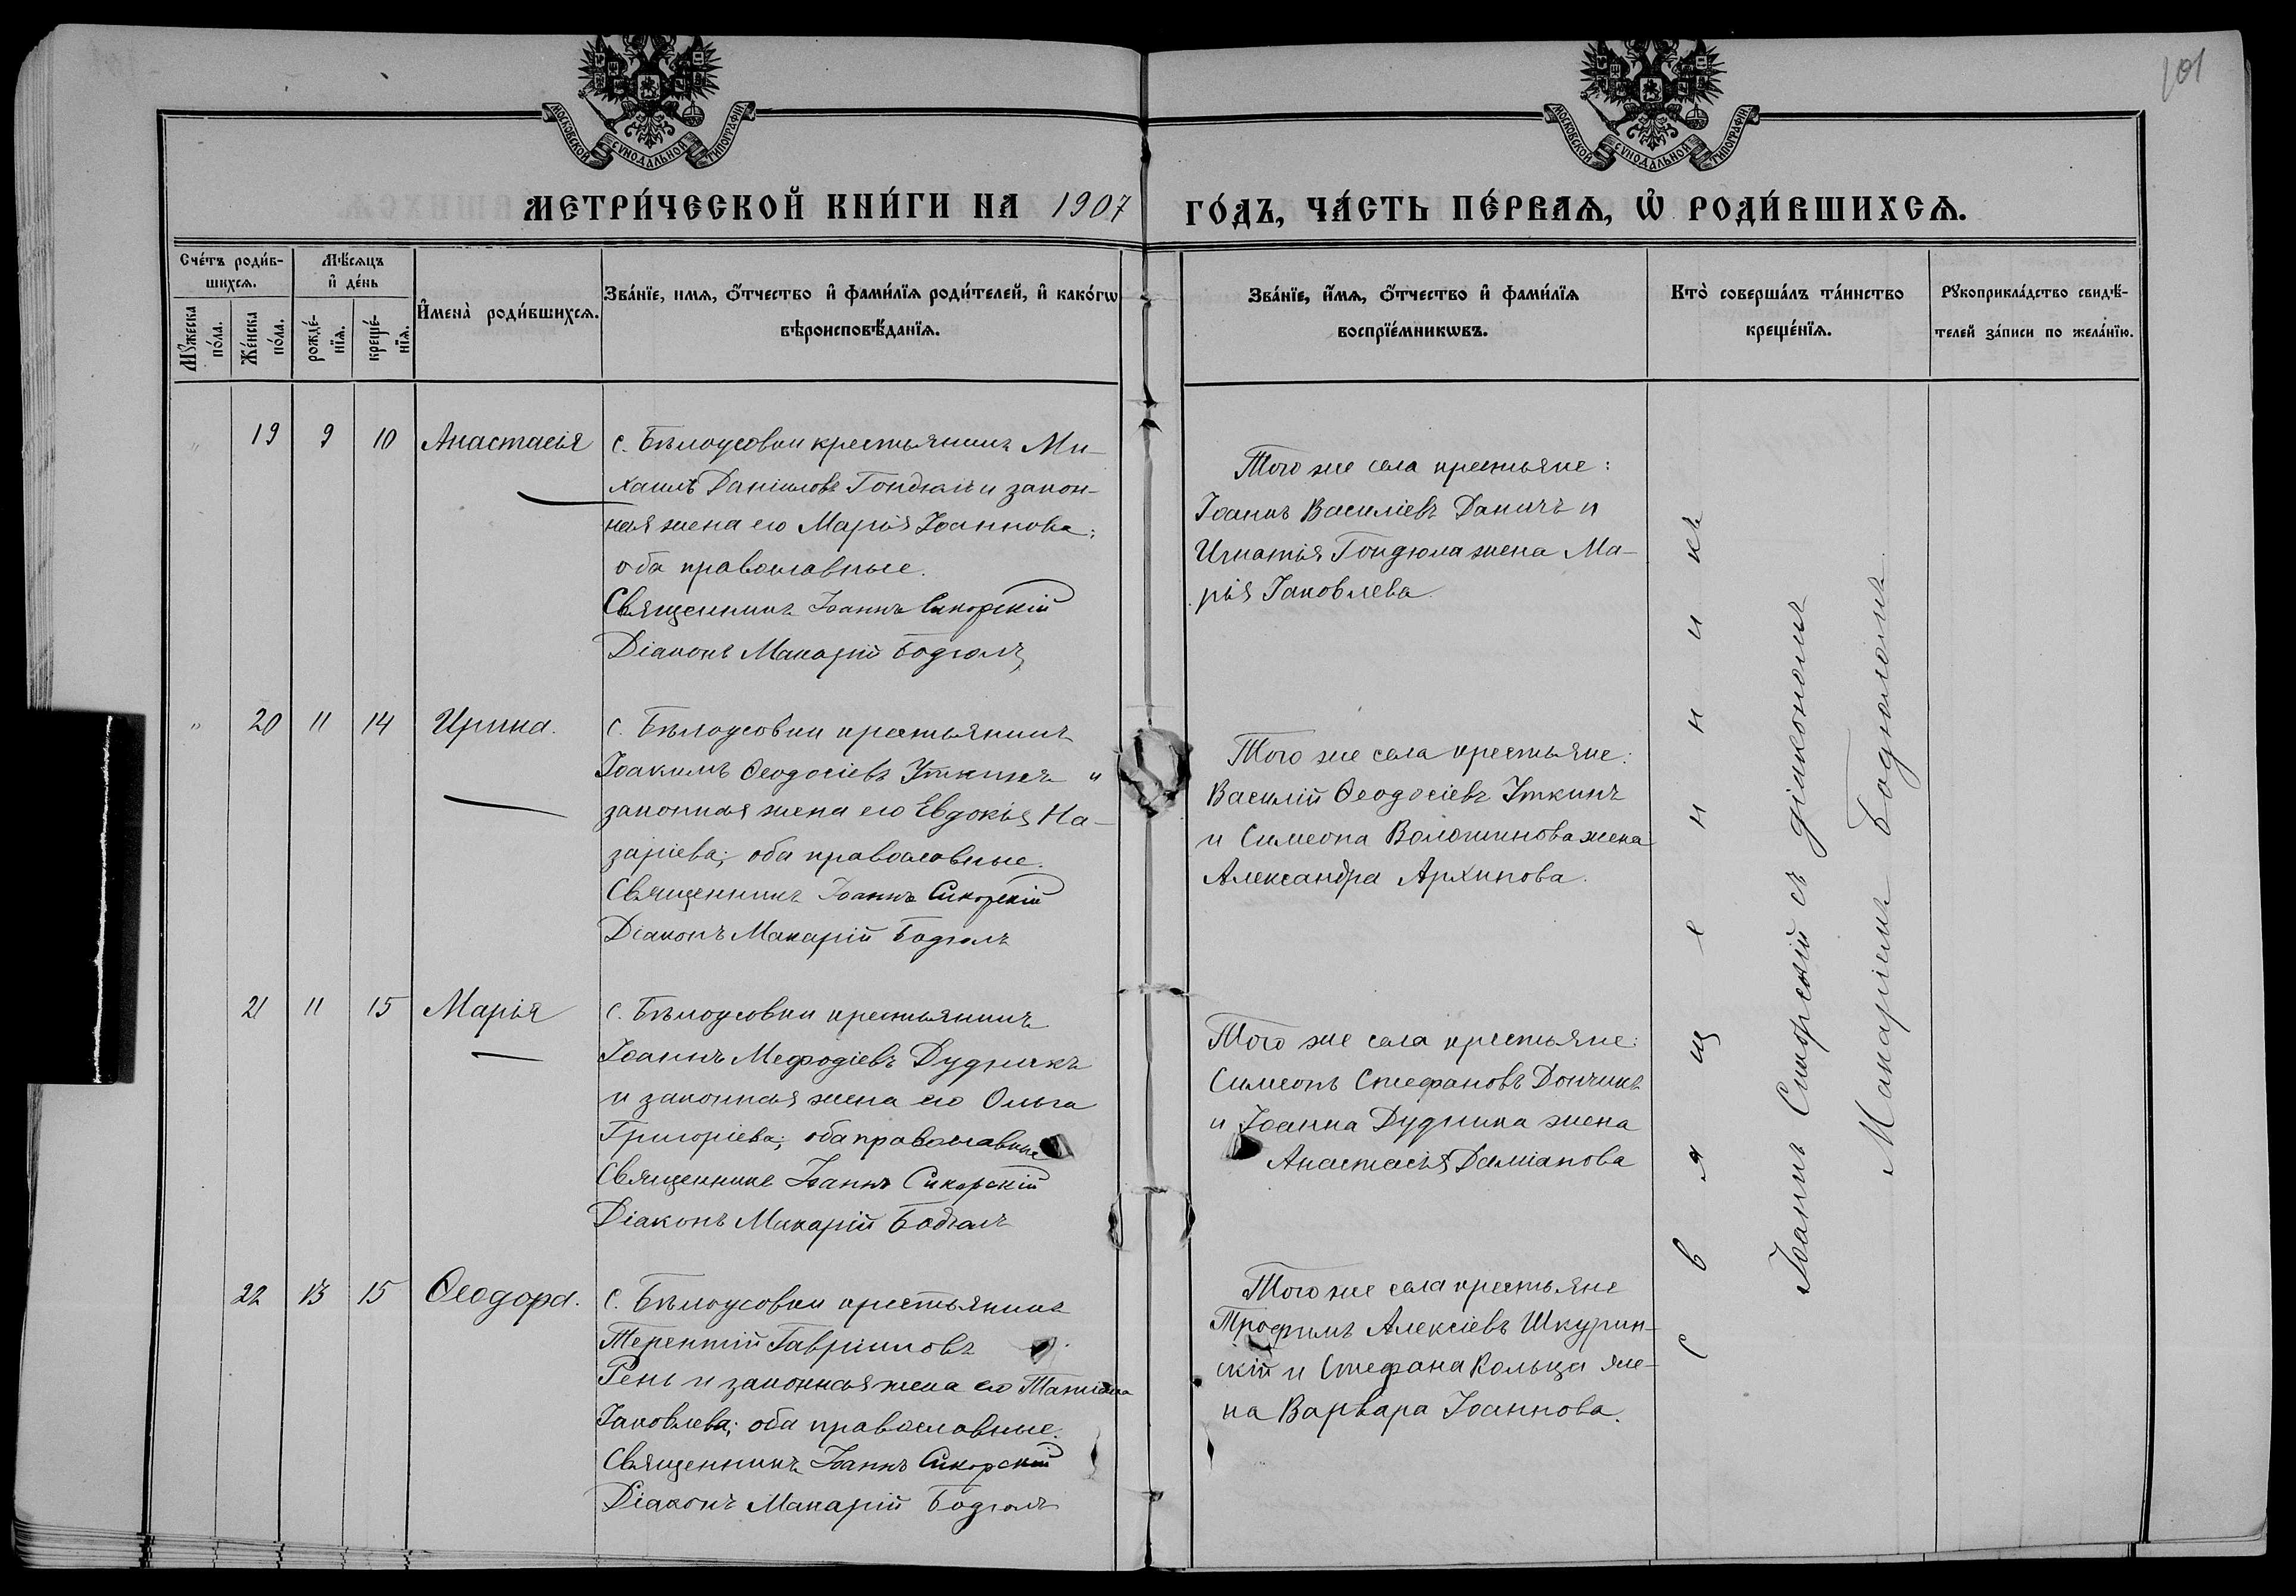 101
МОСКОВСКОЙ СѴНОДАЛЬНОЙ ТИПОГРАФІИ
МОСКОВСКОЙ СѴНОДАЛЬНОЙ ТИПОГРАФІИ
МЕТРИ́ЧЕСКОЙ КНИ́ГИ НА 1907 ГО́ДЪ, ЧА́СТЬ ПЕ́РВАѦ, Ѡ҆ РОДИ́ВШИХСѦ.
Сче́тъ роди́в-
шихсѧ.
Мꙋжеска
по́ла.
Же́нска
по́ла.
Мѣ́сѧцъ
и҆ де́нь
рожде́-
нїѧ.
креще́-
нїѧ.
И҆мена̀ роди́вшихсѧ.
Зва́нїе, имѧ, ѻ҆́тчество и҆ фами́лїѧ роди́телей, и҆ како́гѡ
вѣроисповѣ́данїѧ.
Зва́нїе, и҆́мѧ, ѻ҆́тчество и҆ фами́лїѧ
воспрїе́мникѡвъ.
Кто̀ соверша́лъ та́инство
креще́нїѧ.
Рꙋкоприкла́дство свидѣ́-
телей за́писи по жела́нїю.
" 19 9 10 Анастасія
с. Бѣлоусовки крестьянинъ Ми-
хаилъ Даніиловъ Гондюлъ и закон-
ная жена его Марія Іоаннова;
оба православные.
Священникъ Іоаннъ Сикорскій
Діаконъ Макарій Бодюлъ
Того же села крестьяне:
Іоаннъ Василіевъ Даничъ и
Игнатія Гондюла жена Ма-
рія Іаковлева.
" 20 11 14 Ирина.
с. Бѣлоусовки крестьянинъ
Іоакимъ Ѳеодосіевъ Уткинъ и
законная жена его Евдокія На-
заріева; оба православные.
Священникъ Іоаннъ Сикорскій
Діаконъ Макарій Бодюлъ
Того же села крестьяне:
Василій Ѳеодосіевъ Уткинъ
и Симеона Волошинова жена
Александра Архипова.
21 11 15 Марія
с. Бѣлоусовки крестьянинъ
Іоаннъ Меѳодіевъ Дудникъ
и законная жена его Ольга
Григоріева; оба православные
Священникъ Іоаннъ Сикорскій
Діаконъ Макарій Бодюлъ
Того же села крестьяне:
Симеонъ Стефановъ Дончикъ
и Іоанна Дудника жена
Анастасія Даміанова
22 13 15 Ѳеодора.
с. Бѣлоусовки крестьянинъ
Терентій Гавріиловъ
Рень и законная жена его Татіана
Іаковлева; оба православные.
Священникъ Іоаннъ Сикорскій
Діаконъ Макарій Бодюлъ
Того же села крестьяне
Трофимъ Алексіевъ Шкурин-
скій и Стефана Кольца же-
на Варвара Іоаннова.
Священникъ
Іоаннъ Сикорскій съ діакономъ
Макаріемъ Бодюломъ